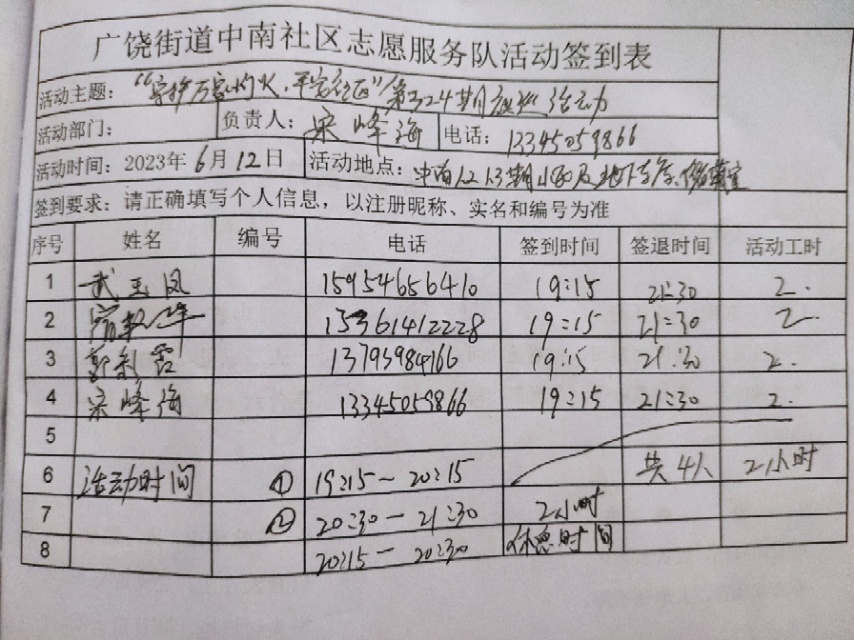 广饶街道中南社区志愿服务队活动签到表
活动主题：“守护万家灯火，平安社区”第324期夜巡活动
活动部门： 负责人：宋峰海 电话：13345059866
活动时间：2023年6月12日 活动地点：中南12.13期小区及地下车库、
签到要求：请正确填写个人信息，以注册昵称、实名和编号为准
序号 姓名 编号 电话 签到时间 签退时间 活动工时
1 武玉凤 15954656410 19:15 21:30 2.
2 15361412228 19:15 21:30 2
3 郭彩霞 13793984166 19:15 21:30 2.
4 宋峰海 13345059866 19:15 21:30 2.
5
6 活动时间 ① 19:15~20:15 共4人 2小时
7 ② 20:30—21:30 2小时
8 20:15—20:30 休息时间